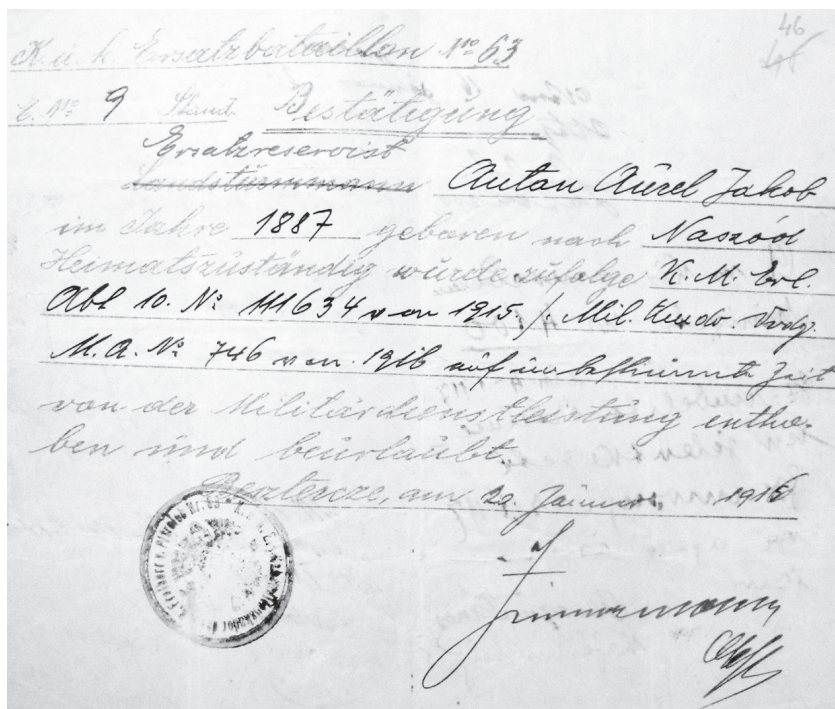 46
K. u. k. Ersatzbataillon No 63
E. No 9 Stand Bestätigung
Ersatzreservist
Landsturmmann Anton Aurel Jakob
im Jahre 1887 geboren nach Naszód
Heimatszuständig wurde zufolge K. M. Erl.
Abt 10. No 111634 von 1915. /. Mil.
M. A. No 746 von 1916 auf unbestimmte Zeit
von der Militärdienstleistung entho-
ben und beurlaubt.
Besztercze, am 29 Jänner 1916
Zimmermann